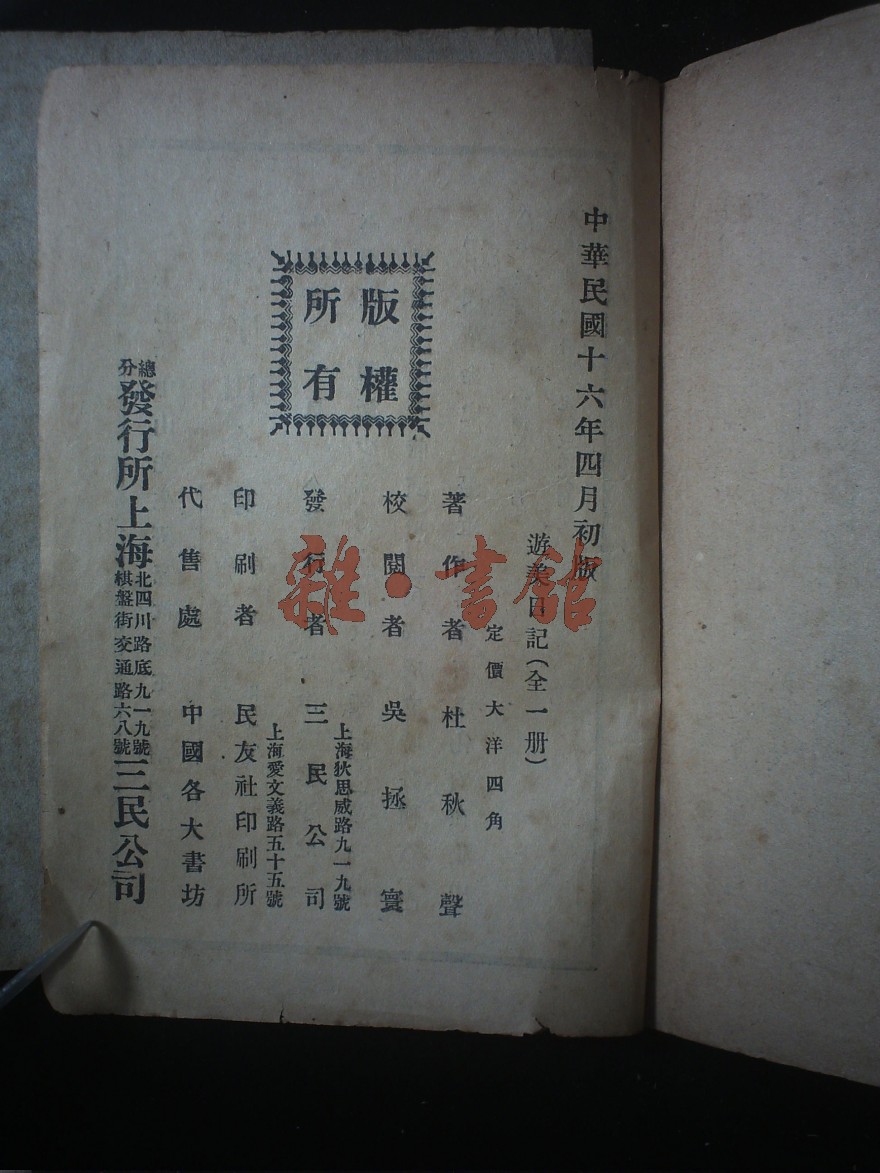 中華民國十六年四月初版
版權
所有
遊柔日記(全一册)
定價大洋四角
著作者 杜秋聲
校閱者 吳拯寰
上海狄思威路九一九號
發行者 三民公司
上海愛文義路五十五號
印刷者 民友社印刷所
代售處 中國各大書坊
總分發行所上海北四川路底九一九號棋盤街交通路六八號三民公司
雜·書館